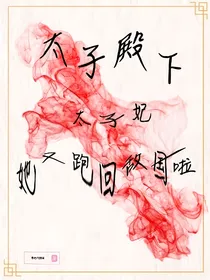 太子殿下
太子妃
她又跑回敌国啦